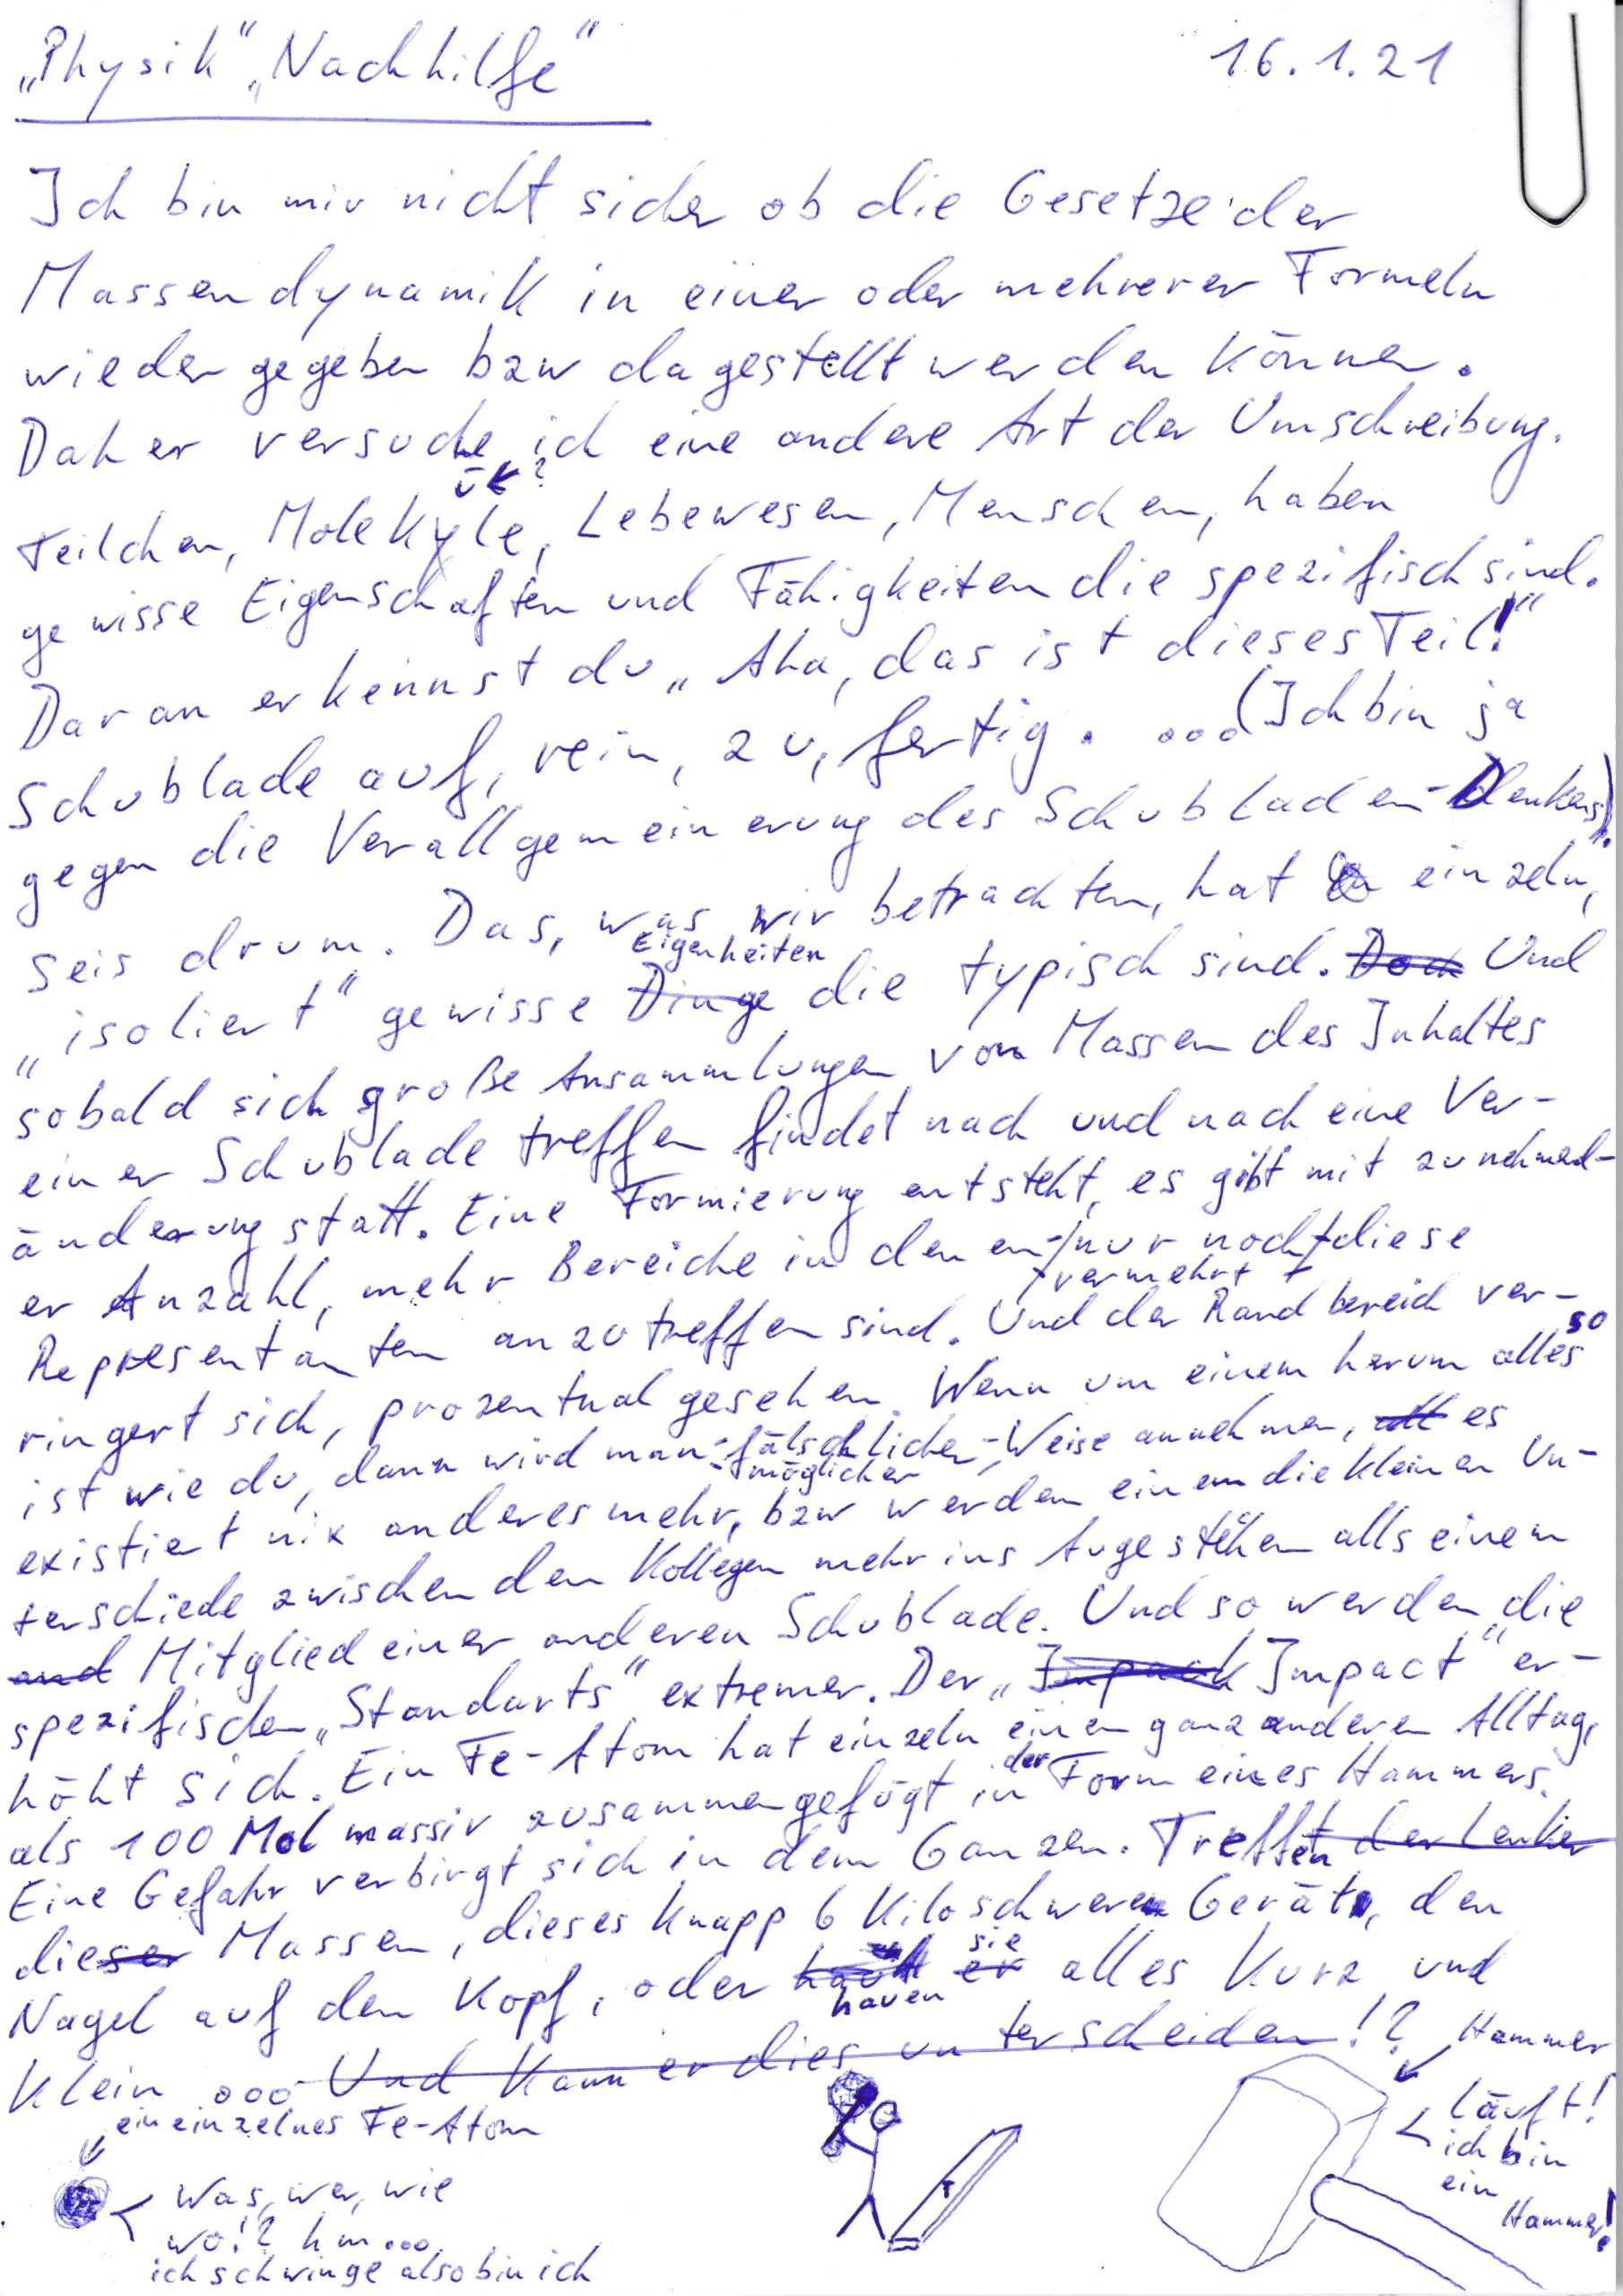 „Physik" „Nachhilfe" 16.1.21
Ich bin mir nicht sicher ob die Gesetze der
Massendynamik in einer oder mehrerer Formeln
wieder gegeben bzw dagestellt werden können.
Daher versuche ich eine andere Art der Umschreibung.
ük?
Teilchen, Molekyle, Lebewesen, Menschen, haben
gewisse Eigenschaften und Fähigkeiten die spezifisch sind.
Daran erkennst du „Aha, das ist dieses Teil!"
Schublade auf, rein, zu, fertig. ...(Ich bin ja
gegen die Verallgemeinerung des Schubladen-Denkens).
Seis drum. Das, was wir betrachten, hat einzeln,
Eigenheiten
„isoliert" gewisse Dinge die typisch sind. Doch Und
sobald sich große Ansammlungen von Massen des Inhaltes
einer Schublade treffen findet nach und nach eine Ver-
änderung statt. Eine Formierung entsteht, es gibt mit zunehmend-
er Anzahl, mehr Bereiche in denen nur noch diese
vermehrt
Representanten anzutreffen sind. Und der Randbereich ver-
so
ringert sich, prozentual gesehen. Wenn um einem herum alles
ist wie du, dann wird man fälschlicher-Weise annehmen, all es
möglicher
existiert nix anderes mehr, bzw werden einem die kleinen Un-
terschiede zwischen den Kollegen mehr ins Auge stehen alls einem
and Mitglied einer anderen Schublade. Und so werden die
spezifischen „Standarts" extremer. Der „Impack Impact" er-
höht sich. Ein Fe-Atom hat einzeln einen ganz anderen Alltag,
der
als 100 Mol massiv zusammengefügt in Form eines Hammers.
Eine Gefahr verbirgt sich in dem Ganzen. Treffen der Lenker
dieser Massen, dieses knapp 6 Kilo schweren Geräts, den
sie
Nagel auf den Kopf, oder haut er alles kurz und
hauen
klein ... Und kann er dies unterscheiden!?
Hammer
ein einzelnes Fe-Atom
Läuft!
ich bin
ein
Hammer!
Was, wer, wie
wo!? hm...
ich schwinge also bin ich